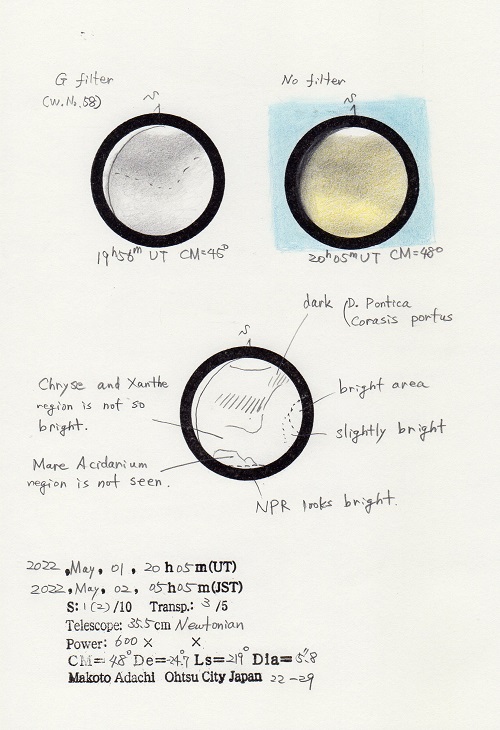 G filter
(W.No.58)
No filter
S
S
19ʰ56ᵐ UT CM=46°
20ʰ05ᵐ UT CM=48°
dark
D. Pontica
Corasis portus
S
Chryse and Xanthe
region is not so
bright.
bright area
slightly bright
Mare Acidarium
region is not seen.
NPR looks bright.
2022, May, 01, 20 h 05 m(UT)
2022, May, 02, 05 h 05 m(JST)
S: 1(2)/10 Transp.: 3/5
Telescope: 35.5cm Newtonian
Power: 600 × ×
CM=48° De=-24.7 Ls=219° Dia=5".8
Makoto Adachi Ohtsu City Japan 22-29